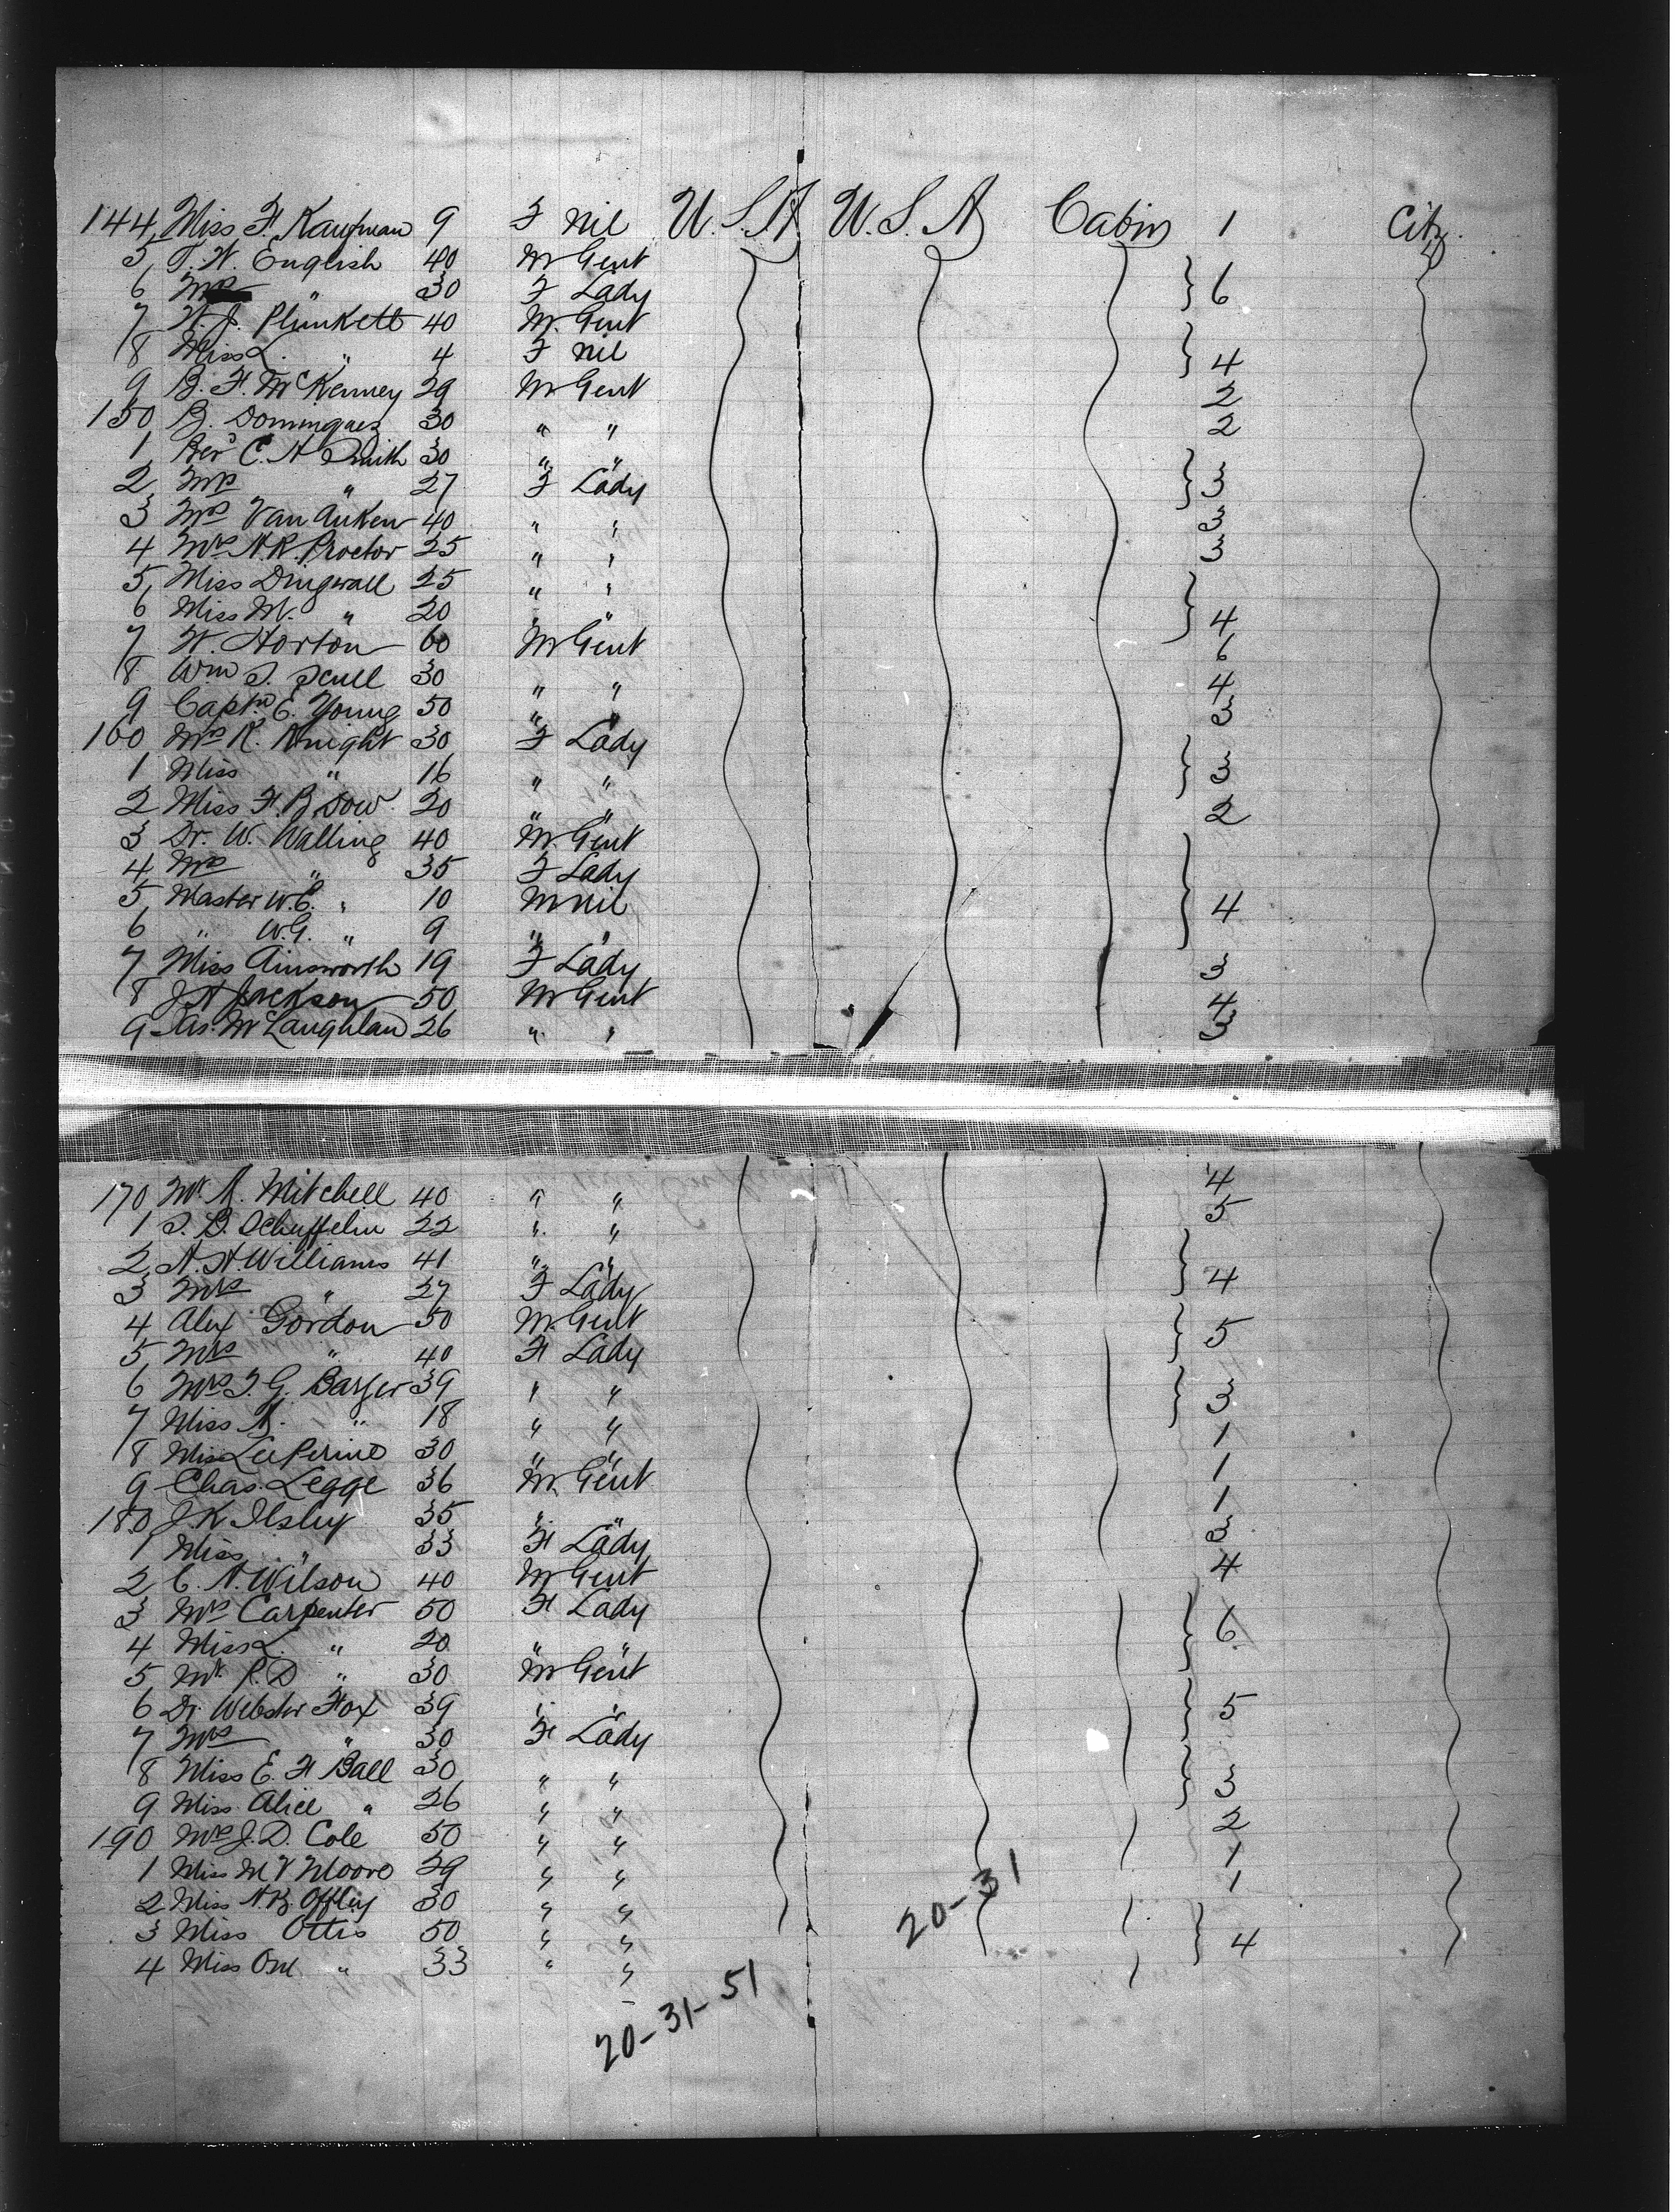 144 Miss H. Kaufman 9 F nil U.S.A U.S.A Cabin 1 City.
5 T. H. English 40 M Gent
6 Mrs " 30 F Lady } 6
7 H. J. Plunkett 40 M. Gent
8 Miss L. " 4 F nil } 4
9 B. F. McKenney 29 M Gent 2
150 B. Domingues 30 " " 2
1 Revd C. H Smith 30 " "
2 Mrs " 27 F Lady } 3
3 Mrs Van Auken 40 " " 3
4 Mrs H. R. Proctor 25 " " 3
5 Miss Dingwall 25 " "
6 Miss M. " 20 " " } 4
7 H. Horton 60 M Gent 6
8 Wm S. Scull 30 " " 4
9 Captn E. Young 50 " " 3
160 Mrs R. Knight 30 F Lady
1 Miss " 16 " " } 3
2 Miss H. B. Dow. 20 " " 2
3 Dr. W. Walling 40 M. Gent
4 Mrs " 35 F Lady
5 Master W.C. " 10 M nil } 4
6 " W.G. " 9 " "
7 Miss Ainsworth 19 F Lady 3
8 J A Jackson 50 M Gent 4
9 Jas. McLaughlan 26 " " 3
170 Mr. A. Mitchell 40 " " 4
1 S. B. Schuffelin 22 " " 5
2 A. H. Williams 41 " "
3 Mrs " 27 F Lady } 4
4 Alex Gordon 50 M. Gent
5 Mrs " 40 F Lady } 5
6 Mrs S. G. Barger 39 " "
7 Miss A. " 18 " " } 3
8 Miss Lee Perine 30 " " 1
9 Chas. Legge 36 M Gent 1
180 J. K Ilsley 35 " " 1
1 Miss " 33 F Lady 3
2 C. A. Wilson 40 M Gent 4
3 Mrs Carpenter 50 F Lady
4 Miss L. " 20 " " } 6
5 Mr. R. D " 30 M Gent
6 Dr. Webster Fox 39 " "
7 Mrs " 30 F Lady } 5
8 Miss E. H Ball 30 " "
9 Miss Alice " 26 " " } 3
190 Mrs J. D. Cole 50 " " 2
1 Miss M V Moore 29 " " 1
2 Miss A. B. Offley 30 " " 1
3 Miss Ottis 50 " "
4 Miss " 33 " " } 4
20-31
20-31-51